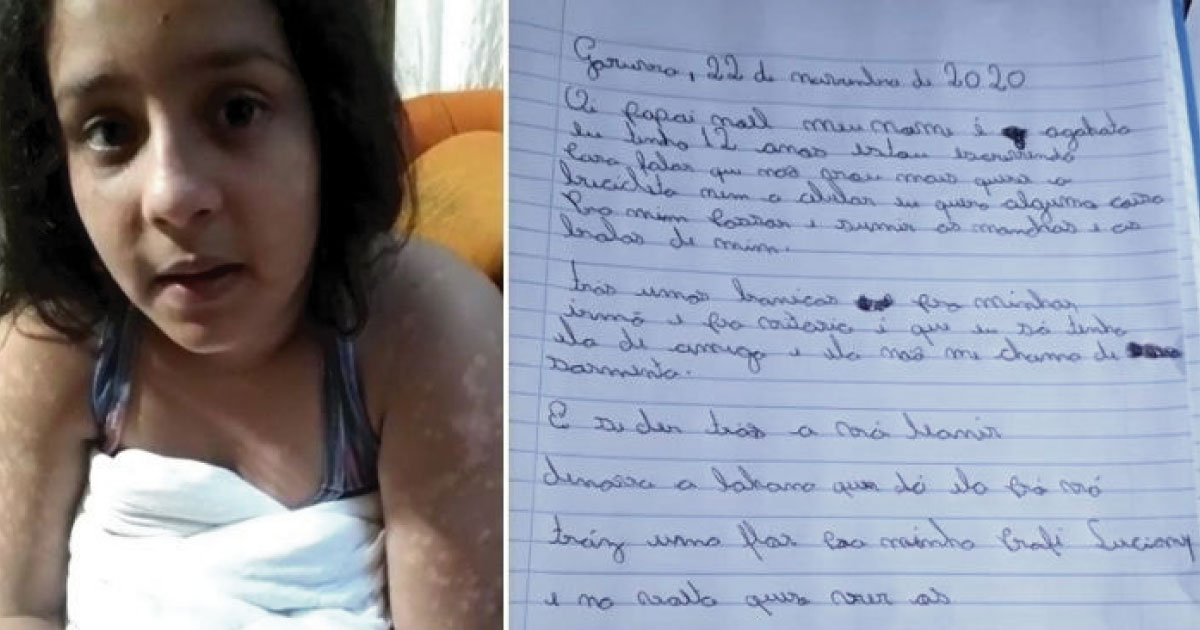 Garuva, 22 de novembro de 2020
Oi papai noel meu nome é agahata
eu tenho 12 anos estou escrevendo
para falar que não quero mais quero a
bicicleta nem o celular eu quero alguma coisa
pra mim passar e sumir as manchas e as
bolas de mim.
tras umas bonecas pra minha
irmã e pra vitoria é que eu só tenho
ela de amiga e ela não me chama de
sarnenta.
E se der tras a vó
a que dó ela pró vó
tráz uma flor pra minha Profi Luciany
e na volta quero ver as